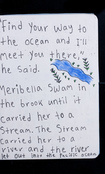 "Find your way to
the ocean and I'll
meet you there,"
he said.
Meribella swam in
the brook until it
carried her to a
Stream. The Stream
carried her to a
river and the river
let out into the Pacific ocean